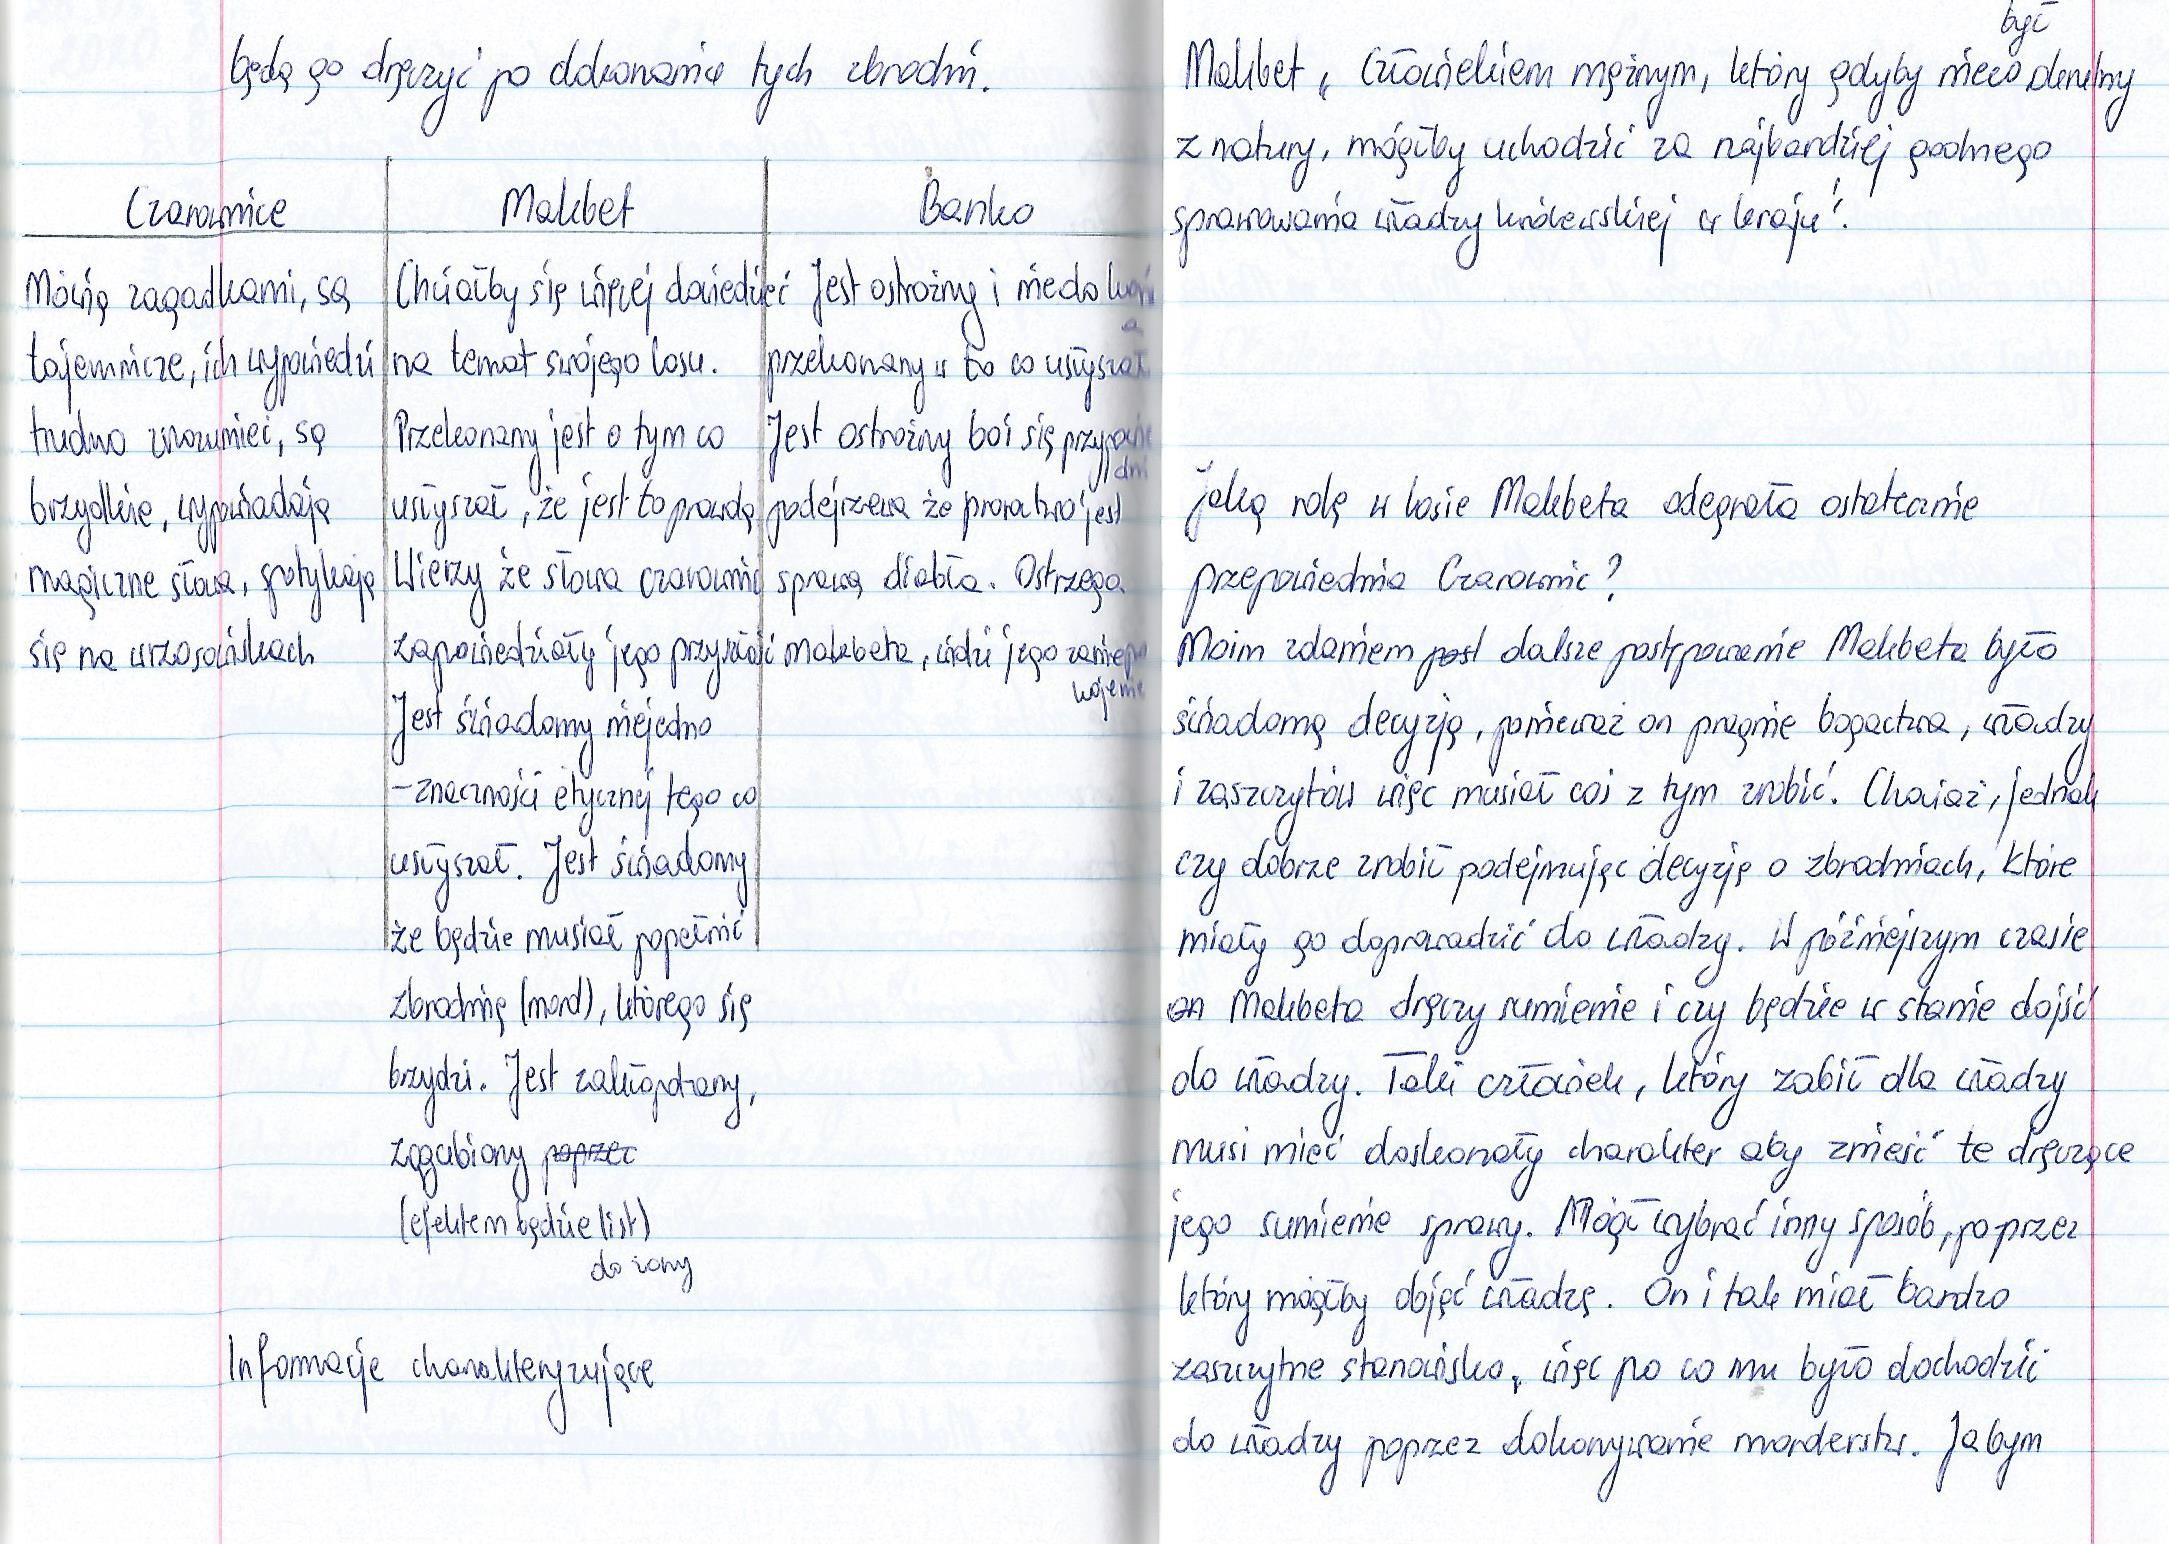 będą go dręczyć po dokonaniu tych zbrodni.
Czarownice
Mówią zagadkami, są
tajemnicze, ich wypowiedzi
trudno zrozumieć, są
brzydkie, wypowiadają
magiczne słowa, spotykają
się na wrzosowiskach
Makbet
Chciałby się więcej dowiedzieć
na temat swojego losu.
Przekonany jest o tym co
usłyszał, że jest to prawdą
Wierzy że słowa czarownic
zapowiedziały jego przyszłość
Jest świadomy niejedno
-znaczności etycznej tego co
usłyszał. Jest świadomy
że będzie musiał popełnić
zbrodnię (mord), którego się
brzydzi. Jest zakłopotany,
zagubiony poprzez
(efektem będzie list)
do żony
Banko
Jest ostrożny i niedo końca
przekonany w to co usłyszał
Jest ostrożny boi się przypowie
dni
podejrzewa że proroctwo jest
sprawą diabła. Ostrzega
makbeta, widzi jego zaniepo
kojenie
Informacje charakteryzujące
być
Makbet „ człowiekiem mężnym, który gdyby nieco
z natury, mógłby uchodzić za najbardziej godnego
sprawowania władzy królewskiej w kraju".
jaką rolę w losie Makbeta odegrała ostatecznie
przepowiednia Czarownic?
Moim zdaniem post dalsze postępowanie Makbeta było
świadomą decyzją, ponieważ on pragnie bogactwa, władzy
i zaszczytów więc musiał coś z tym zrobić. Chociaż, jednak
czy dobrze zrobił podejmując decyzję o zbrodniach, które
miały go doprowadzić do władzy. W późniejszym czasie
on Makbeta dręczy sumienie i czy będzie w stanie dojść
do władzy. Taki człowiek, który zabił dla władzy
musi mieć doskonały charakter aby znieść te dręczące
jego sumienie sprawy. Mógł wybrać inny sposób, poprzez
który mógłby objąć władzę. On i tak miał bardzo
zaszczytne stanowisko, więc po co mu było dochodzić
do władzy poprzez dokonywanie morderstw. Ja bym